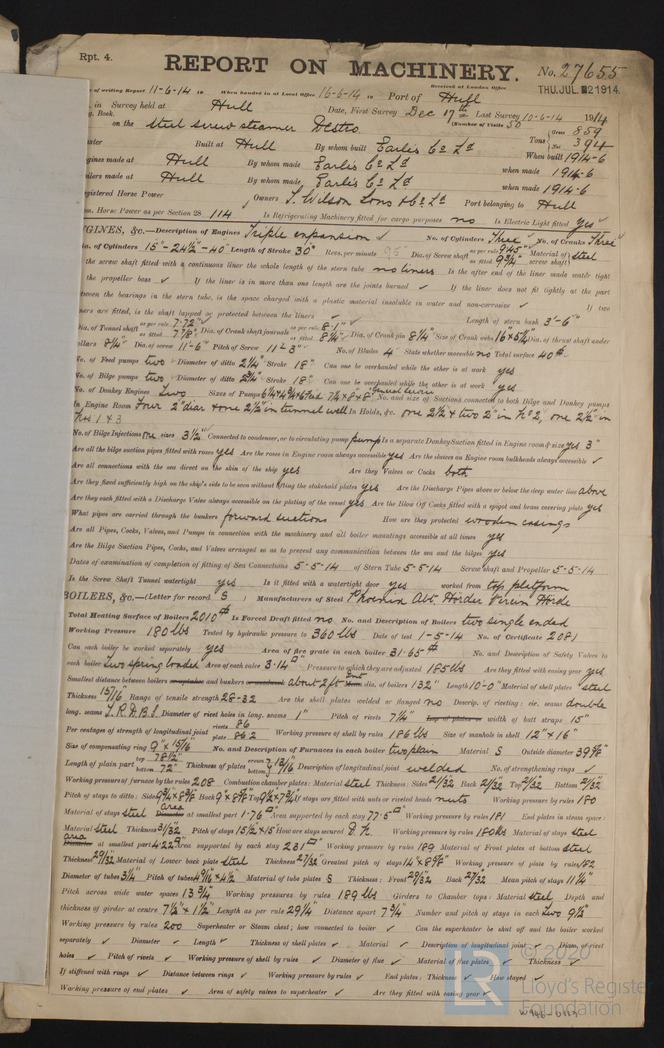 Rpt. 4.
REPORT ON MACHINERY.
No. 27655
THU. JUL. 2 1914.
of writing Report 11-6-14 19 When handed in at Local Office 16-6-14 19 Port of Hull
Received at London Office
in Survey held at Hull Date, First Survey Dec 17th Last Survey 10-6-14 1914
Book. (Number of Visits 50
on the steel screw steamer Destro Tons Gross 859 Net 394
Built at Hull By whom built Earle's Co Ld When built 1914-6
gines made at Hull By whom made Earle's Co Ld when made 1914-6
ilers made at Hull By whom made Earle's Co Ld when made 1914-6
egistered Horse Power Owners T. Wilson Sons & Co Ld Port belonging to Hull
Horse Power as per Section 28 114 Is Refrigerating Machinery fitted for cargo purposes no Is Electric Light fitted yes
GINES, &c.—Description of Engines Triple expansion No. of Cylinders Three No. of Cranks Three
ia. of Cylinders 15"-24½"-40" Length of Stroke 30" Revs. per minute 95 Dia. of Screw shaft as per rule 9.45" as fitted 9¾" Material of screw shaft steel
the screw shaft fitted with a continuous liner the whole length of the stern tube no liners Is the after end of the liner made water tight
the propeller boss ✓ If the liner is in more than one length are the joints burned ✓ If the liner does not fit tightly at the part
tween the bearings in the stern tube, is the space charged with a plastic material insoluble in water and non-corrosive ✓ If two
ners are fitted, is the shaft lapped or protected between the liners ✓ Length of stern bush 3'-6"
Dia. of Tunnel shaft as per rule 7.72" as fitted 7⅞" Dia. of Crank shaft journals as per rule 8.1" as fitted 8¼" Dia. of Crank pin 8¼" Size of Crank webs 16"x5¼" Dia. of thrust shaft under
ollars 8¼" Dia. of screw 11'-6" Pitch of Screw 11'-3" No. of Blades 4 State whether moveable no Total surface 40
No. of Feed pumps two Diameter of ditto 2¼" Stroke 18" Can one be overhauled while the other is at work yes
No. of Bilge pumps two Diameter of ditto 2¾" Stroke 18" Can one be overhauled while the other is at work yes
No. of Donkey Engines Two Sizes of Pumps No. and size of Suctions connected to both Bilge and Donkey pumps
In Engine Room Four 2" diar & one 2½" in tunnel well In Holds, &c. one 2½" & two 2" in No 2, one 2½" in
Nos 1 & 3
No. of Bilge Injections one sizes 3½" Connected to condenser, or to circulating pump pump Is a separate Donkey Suction fitted in Engine room & size yes 3"
Are all the bilge suction pipes fitted with roses yes Are the roses in Engine room always accessible yes Are the sluices on Engine room bulkheads always accessible ✓
Are all connections with the sea direct on the skin of the ship yes Are they Valves or Cocks both
Are they fixed sufficiently high on the ship's side to be seen without lifting the stokehold plates yes Are the Discharge Pipes above or below the deep water line above
Are they each fitted with a Discharge Valve always accessible on the plating of the vessel yes Are the Blow Off Cocks fitted with a spigot and brass covering plate yes
What pipes are carried through the bunkers forward suctions How are they protected wooden casings
Are all Pipes, Cocks, Valves, and Pumps in connection with the machinery and all boiler mountings accessible at all times yes
Are the Bilge Suction Pipes, Cocks, and Valves arranged so as to prevent any communication between the sea and the bilges yes
Dates of examination of completion of fitting of Sea Connections 5-5-14 of Stern Tube 5-5-14 Screw shaft and Propeller 5-5-14
Is the Screw Shaft Tunnel watertight yes Is it fitted with a watertight door yes worked from top platform
BOILERS, &c.—(Letter for record S) Manufacturers of Steel Phoenix Abt Hörder Verein Hörde
Total Heating Surface of Boilers 2010 Is Forced Draft fitted no No. and Description of Boilers two single ended
Working Pressure 180 lbs Tested by hydraulic pressure to 360 lbs Date of test 1-5-14 No. of Certificate 2081
Can each boiler be worked separately yes Area of fire grate in each boiler 31.65 No. and Description of Safety Valves to
each boiler two spring loaded Area of each valve 3.14 Pressure to which they are adjusted 185 lbs Are they fitted with easing gear yes
Smallest distance between boilers and bunkers about 2 ft dia. of boilers 132" Length 10-0" Material of shell plates steel
Thickness 15/16 Range of tensile strength 28-32 Are the shell plates welded or flanged no Descrip. of riveting: cir. seams double
long. seams T.R.D.B.S. Diameter of rivet holes in long. seams 1" Pitch of rivets 7¼" width of butt straps 15"
Per centages of strength of longitudinal joint rivets 86 plate 86.2 Working pressure of shell by rules 186 lbs Size of manhole in shell 12" x 16"
Size of compensating ring 9" x 15/16" No. and Description of Furnaces in each boiler two plain Material S Outside diameter 39⅝"
Length of plain part top 78½" bottom 72" Thickness of plates crown bottom 13/16 Description of longitudinal joint welded No. of strengthening rings ✓
Working pressure of furnace by the rules 208 Combustion chamber plates: Material steel Thickness: Sides 21/32 Back 21/32 Top 21/32 Bottom 21/32
Pitch of stays to ditto: Sides Back Top If stays are fitted with nuts or riveted heads nuts Working pressure by rules 180
Material of stays steel area at smallest part 1.76 Area supported by each stay 77.5 Working pressure by rules 181 End plates in steam space:
Material steel Thickness 31/32 Pitch of stays 15½x15 How are stays secured D.N. Working pressure by rules 180 lbs Material of stays steel
area at smallest part 4.22 Area supported by each stay 231 Working pressure by rules 189 Material of Front plates at bottom steel
Thickness 29/32 Material of Lower back plate steel Thickness 27/32 Greatest pitch of stays 14 x 8⅝" Working pressure of plate by rules 182
Diameter of tubes 3¼" Pitch of tubes Material of tube plates S Thickness: Front 29/32 Back 27/32 Mean pitch of stays 11¼"
Pitch across wide water spaces 13¾" Working pressures by rules 189 lbs Girders to Chamber tops: Material steel Depth and
thickness of girder at centre 7½" x 1½" Length as per rule 29¼ Distance apart 7¾ Number and pitch of stays in each two 9½"
Working pressure by rules 200 Superheater or Steam chest; how connected to boiler ✓ Can the superheater be shut off and the boiler worked
separately ✓ Diameter ✓ Length ✓ Thickness of shell plates ✓ Material ✓ Description longitudinal joint ✓ Diam. of rivet
holes ✓ Pitch of rivets ✓ Working pressure of shell by rules ✓ Diameter of flue ✓ Material of flue plates ✓ Thickness ✓
If stiffened with rings ✓ Distance between rings ✓ Working pressure by rules ✓ End plates: Thickness ✓ How stayed ✓
Working pressure of end plates ✓ Area of safety valves to superheater ✓ Are they fitted with easing gear ✓
LR © 2020
Lloyd's Register
Foundation
W946-0117